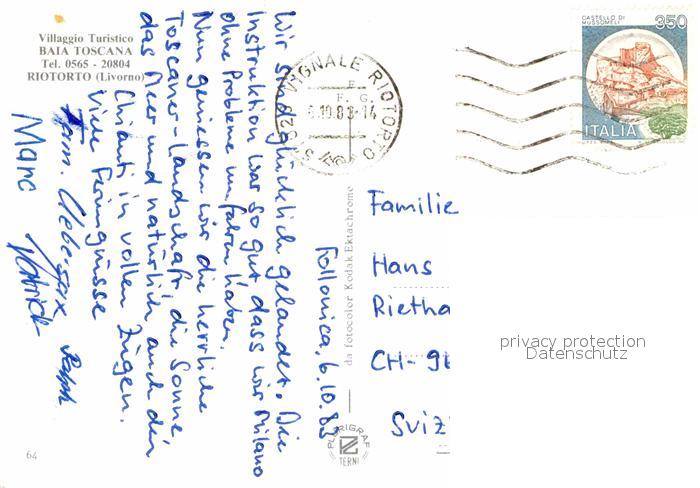 Villaggio Turistico
BAIA TOSCANA
Tel. 0565 - 20804
RIOTORTO (Livorno)
Follonica, 6.10.83
Wir sind glücklich gelandet. Die
Instruktion war so gut dass wir Milano
ohne Probleme umfahren haben.
Nun geniessen wir die herrliche
Toscaner-Landschaft, die Sonne,
das Meer und natürlich auch den
Chianti in vollen Zügen.
Viele Feriengrüsse
Fam. Uebersax
Marc Patrick Ralph
64
da fotocolor Kodak Ektachrome
PLURIGRAF
TERNI
VIGNALE RIOTORTO
F. G.
6.10.83-14
CASTELLO DI
MUSSOMELI
350
ITALIA
Familie
Hans
Rietha
CH-96
Sviz
privacy protection
Datenschutz